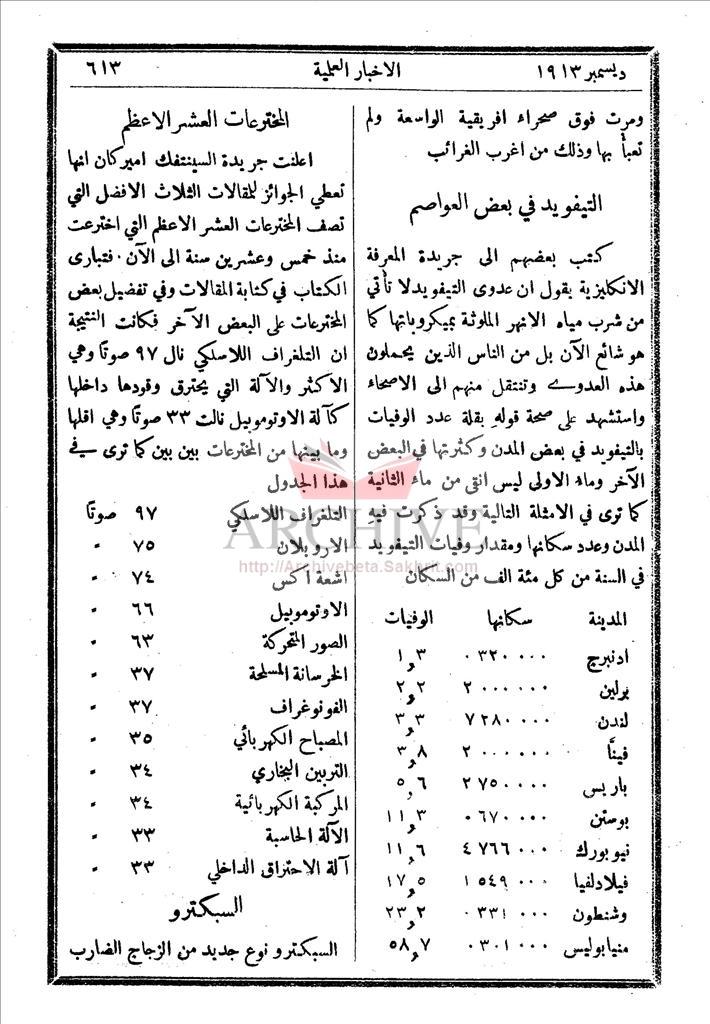 ديسمبر ١٩١٣ الاخبار العلمية ٦١٣
ومرت فوق صحراء افريقية الواسعة ولم
تعبأ بها وذلك من اغرب الغرائب
التيفويد في بعض العواصم
كتب بعضهم الى جريدة المعرفة
الانكليزية يقول ان عدوى التيفويد لا تأتي
من شرب مياه الانهر الملوثة بميكروباتها كما
هو شائع الآن بل من الناس الذين يحملون
هذه العدوے وتنتقل منهم الى الاصحاء
واستشهد على صحة قوله بقلة عدد الوفيات
بالتيفويد في بعض المدن وكثرتها في البعض
الآخر وماء الاولى ليس انقى من ماء الثانية
كما ترى في الامثلة التالية وقد ذكرت فيهِ
المدن وعدد سكانها ومقدار وفيات التيفويد
في السنة من كل مئة الف من السكان
المدينة سكانها الوفيات
ادنبرج ٠٣٢٠ ٠٠٠ ١٫٣
برلين ٢٠٠٠ ٠٠٠ ٢٫٢
لندن ٧٢٨٠ ٠٠٠ ٣٫٣
فينَّا ٢٠٠٠ ٠٠٠ ٣٫٨
باريس ٢٧٥٠ ٠٠٠ ٥٫٦
بوستن ٠٦٧٠ ٠٠٠ ١١٫٣
نيويورك ٤٧٦٦ ٠٠٠ ١١٫٦
فيلادلفيا ١٥٤٩ ٠٠٠ ١٧٫٥
وشنطون ٠٣٣١ ٠٠٠ ٢٣٫٢
منيابوليس ٠٣٠١ ٠٠٠ ٥٨٫٧
المخترعات العشر الاعظم
اعلنت جريدة السينتفك اميركان انها
تعطي الجوائز للمقالات الثلاث الافضل التي
تصف المخترعات العشر الاعظم التي اخترعت
منذ خمس وعشرين سنة الى الآن. فتبارى
الكتاب في كتابة المقالات وفي تفضيل بعض
المخترعات على البعض الآخر فكانت النتيجة
ان التلغراف اللاسلكي نال ٩٧ صوتًا وهي
الاكثر والآلة التي يحترق وقودها داخلها
كآلة الاوتوموبيل نالت ٣٣ صوتًا وهي اقلها
وما بينها من المخترعات بين بين كما ترى في
هذا الجدول
التلغراف اللاسلكي ٩٧ صوتًا
الاروبلان ٧٥ "
اشعة اكس ٧٤ "
الاوتوموبيل ٦٦ "
الصور المتحركة ٦٣ "
الخرسانة المسلحة ٣٧ "
الفونوغراف ٣٧ "
المصباح الكهربائي ٣٥ "
التربين البخاري ٣٤ "
المركبة الكهربائية ٣٤ "
الآلة الحاسبة ٣٣ "
آلة الاحتراق الداخلي ٣٣ "
السبكترو
السبكترو نوع جديد من الزجاج الضارب
ARCHIVE
http://Archivebeta.Sakhrit.com